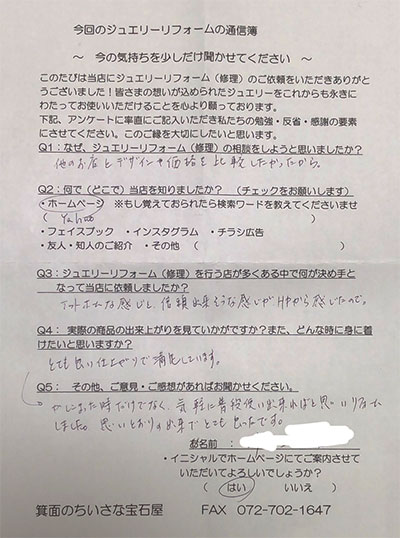 今回のジュエリーリフォームの通信簿
～ 今の気持ちを少しだけ聞かせてください ～
このたびは当店にジュエリーリフォーム（修理）のご依頼をいただきありが
とうございました！皆さまの想いが込められたジュエリーをこれからも永きに
わたってお使いいただけることを心より願っております。
下記、アンケートに率直にご記入いただき私たちの勉強・反省・感謝の要素
にさせてください。このご縁を大切にしたいと思います。
Q1：なぜ、ジュエリーリフォーム（修理）の相談をしようと思いましたか？
他のお店とデザインや価格を比較したかったから。
Q2：何で（どこで）当店を知りましたか？ （チェックをお願いします）
・ホームページ ※もし覚えておられたら検索ワードを教えてくださいませ
（ Yahoo ）
・フェイスブック ・インスタグラム ・チラシ広告
・友人・知人のご紹介 ・その他（ ）
Q3：ジュエリーリフォーム（修理）を行う店が多くある中で何が決め手と
なって当店に依頼しましたか？
アットホームな感じと、信頼出来そうな感じがHPから感じたので。
Q4： 実際の商品の出来上がりを見ていかがですか？また、どんな時に身に着
けたいと思いますか？
とても良い仕上がりで満足しています。
Q5： その他、ご意見・ご感想があればお聞かせください。
かしこまった時だけでなく、気軽に普段使い出来ればと思いリフォーム
しました。思いどおりの出来でとても良かったです。
お名前 ：
・イニシャルでホームページにてご案内させて
いただいてよろしいでしょうか？
（ はい いいえ ）
箕面のちいさな宝石屋 FAX 072-702-1647